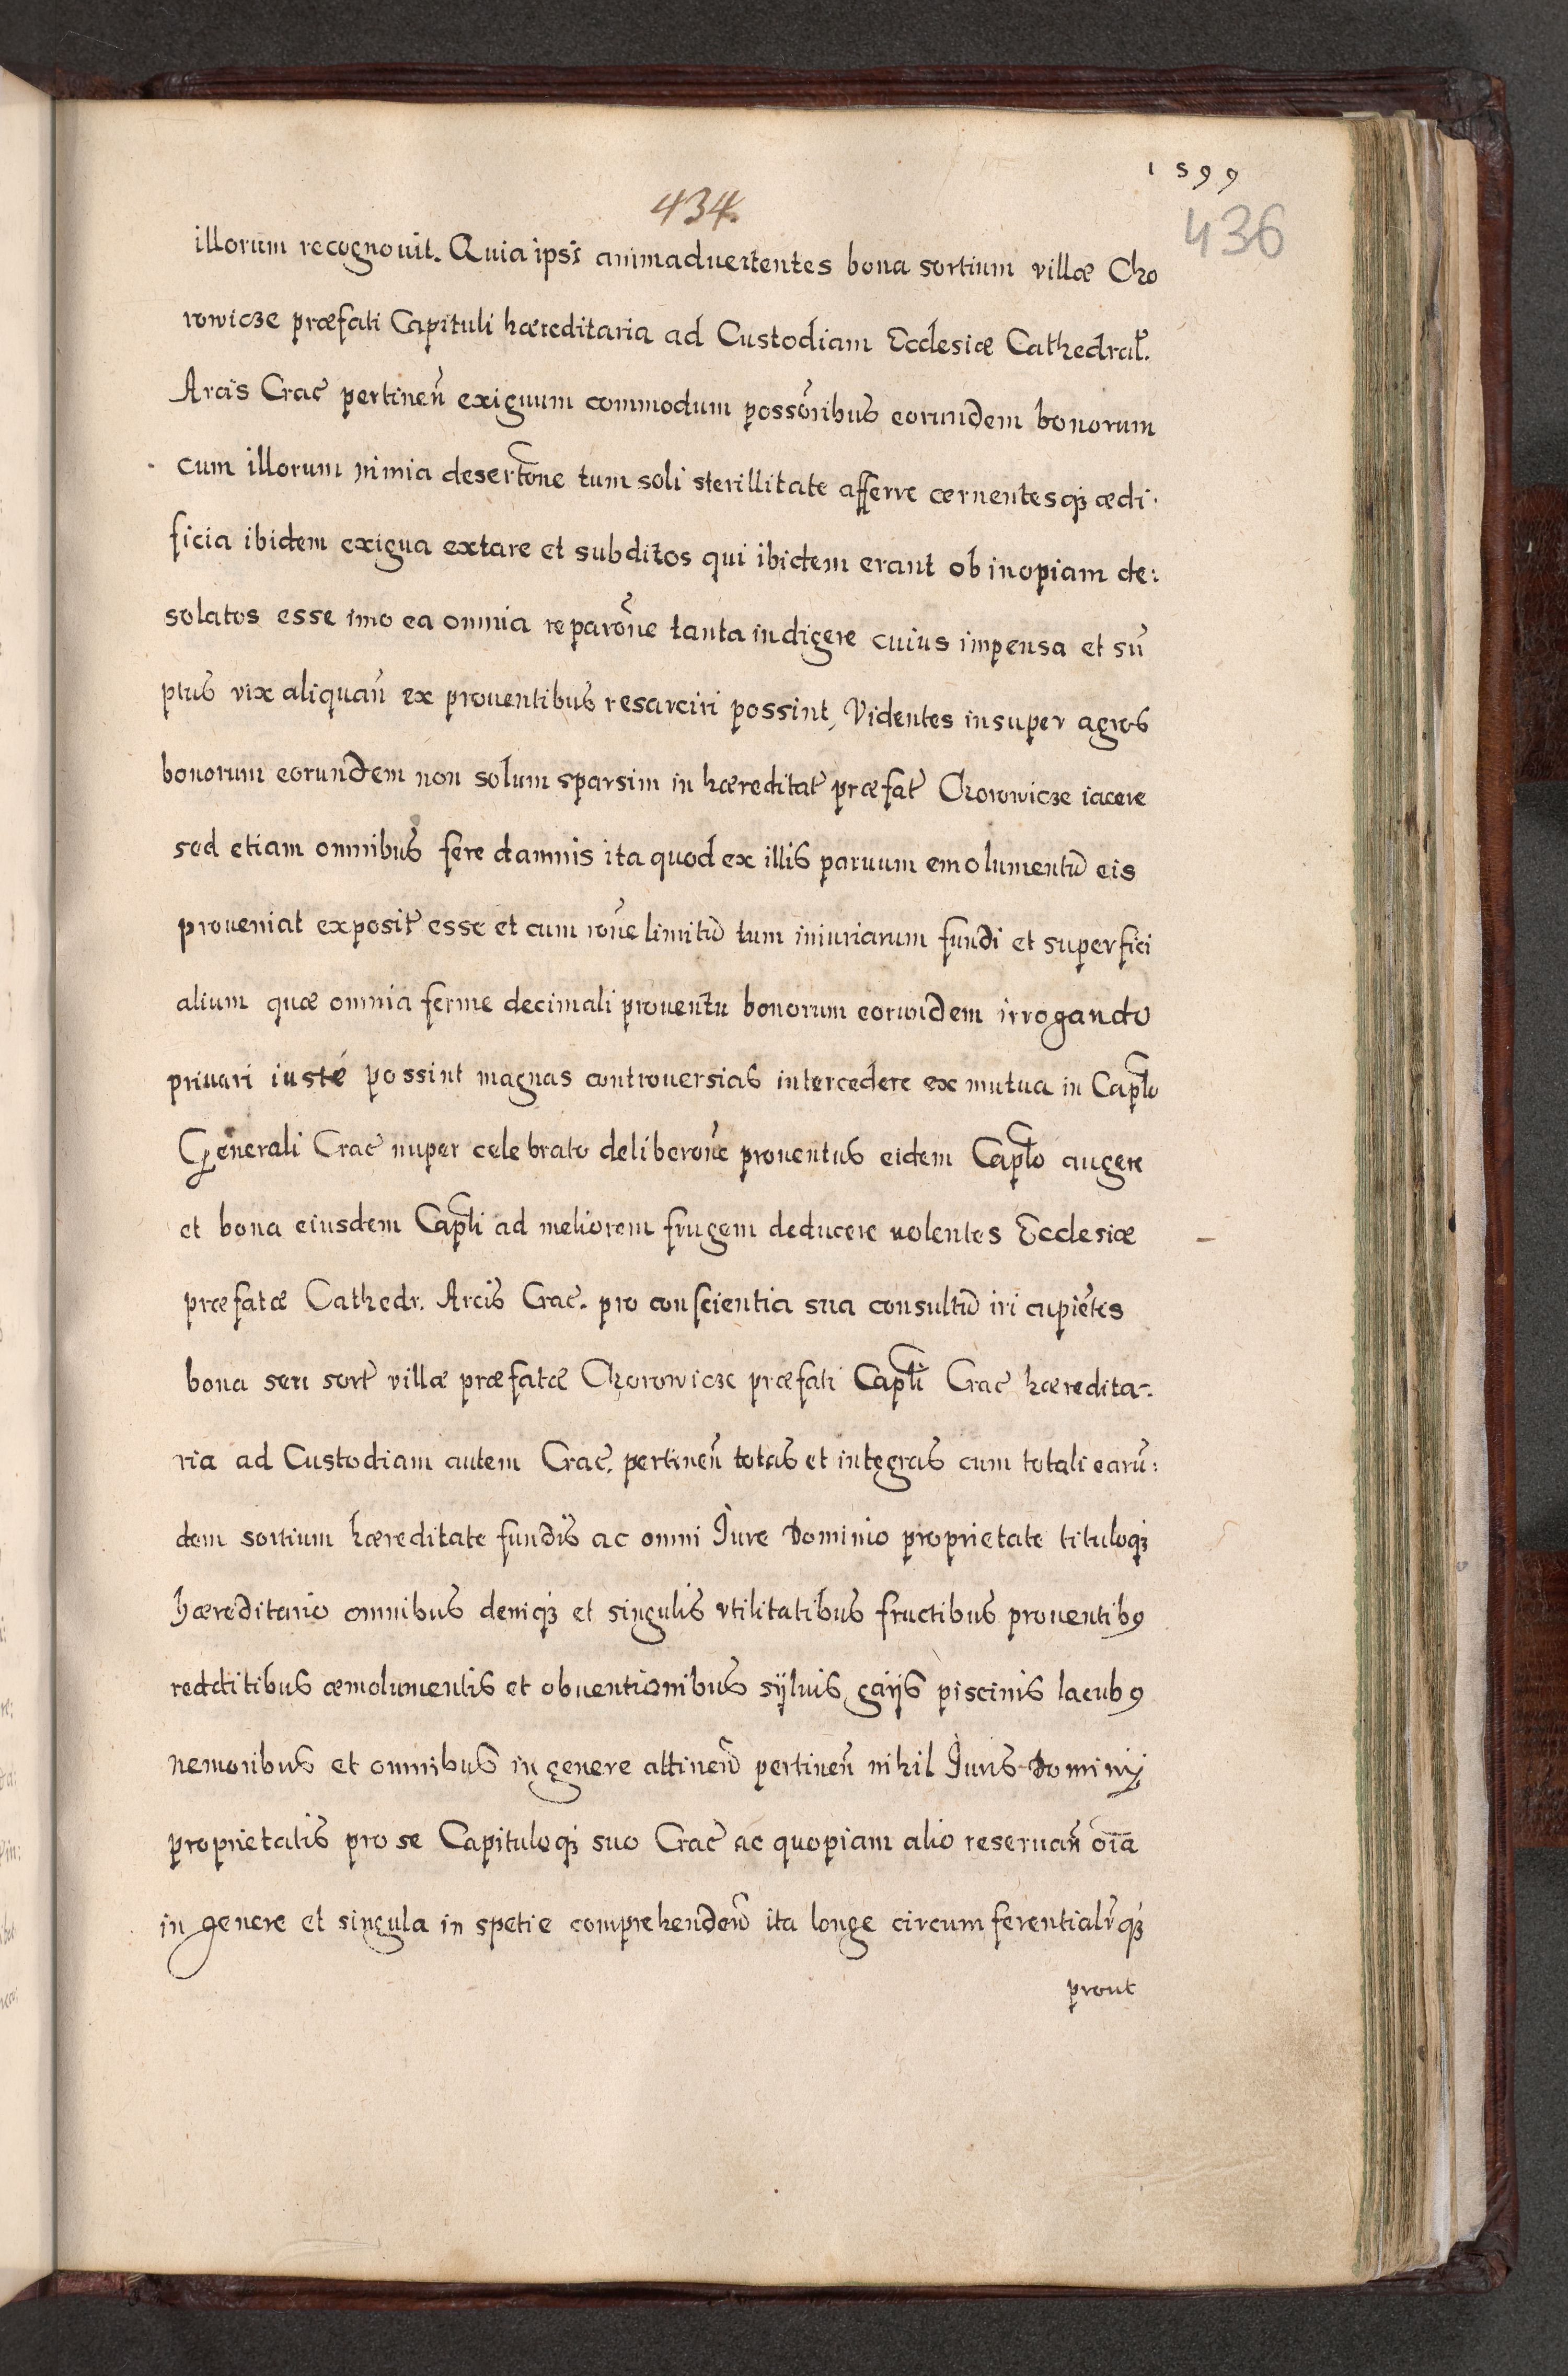 1599
434.
436
illorum recognouit. Quia ipsi animaduertentes bona sortium villæ Cho
rowicze præfati Capituli hæreditaria ad Custodiam Ecclesiæ Cathedral.
Arcis Crac̃ pertineñ exiguum commodum possõribus eorundem bonorum
cum illorum nimia desertõne tum soli sterillitate afferre cernentesqꝫ ædi·
ficia ibidem exigua extare et subditos qui ibidem erant ob inopiam de:
solatos esse imo ea omnia reparõne tanta indigere cuius impensa et sũ
ptus vix aliquañ ex prouentibus resarciri possint, Videntes insuper agros
bonorum eorundem non solum sparsim in hæreditat̃ præfat̃ Chorowicze iacere
sed etiam omnibus fere damnis ita quod ex illis paruum emolumentũ eis
proueniat exposit̃ esse et cum rõne limitũ tum iniuriarum fundi et superfici
alium quæ omnia ferme decimali prouentu bonorum eorundem irrogando
priuari iusté possint magnas controuersias intercedere ex mutua in Caplõ
Generali Crac̃ nuper celebrato deliberõne prouentus eidem Caplõ augere
et bona eiusdem Capl̃i ad meliorem frugem deducere uolentes Ecclesiæ
præfatæ Cathedr. Arcis Crac̃. pro conscientia sua consultũ iri cupiẽtes
bona seu sort̃ villæ præfatæ Chorowicze præfati Capl̃i Crac̃ hæredita-:
ria ad Custodiam autem Crac̃. pertineñ totas et integras cum totali earũ:
dem sortium hæreditate fundis ac omni Jure Dominio proprietate tituloqꝫ
hæreditario omnibus deniqꝫ et singulis vtilitatibus fructibus prouentibꝰ
redditibus æmolumentis et obuentionibus sÿluis, gaijs piscinis lacubꝰ
nemoribus et omnibus in genere attineñ pertineñ nihil Juris Dominij
proprietatis pro se Capituloqꝫ suo Crac̃ ac quopiam alio reseruañ oĩa
in genere et singula in spetie comprehendeñ ita longe circumferentialr̃qꝫ
prout